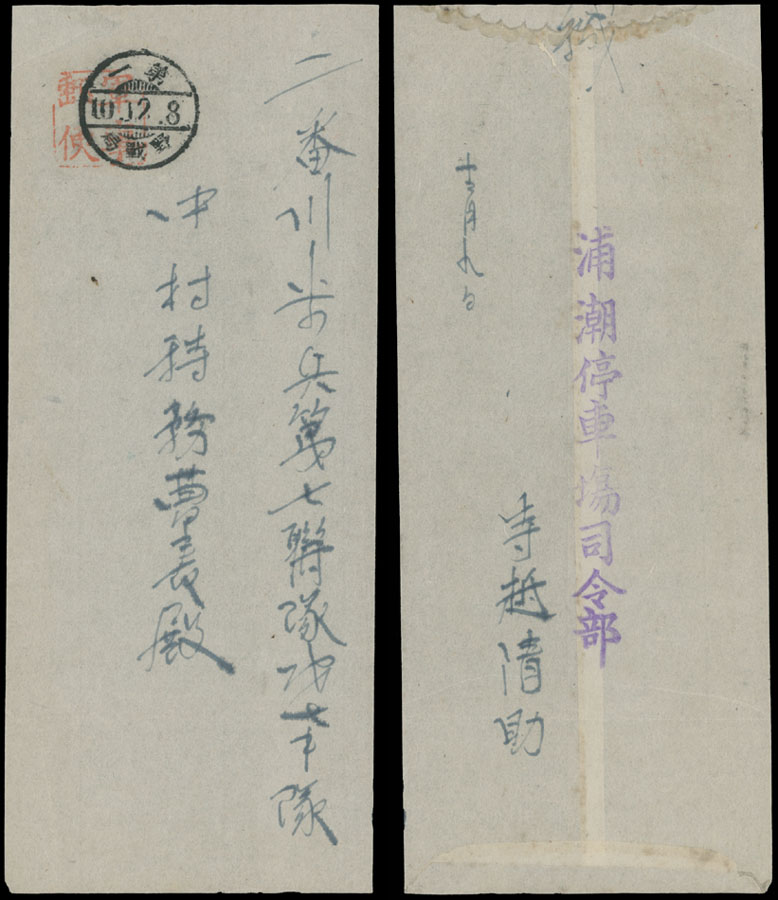 軍事
郵便
第二
10.12.8
二番川歩兵第七聯隊第七中隊
中村特務曹長殿
緘
浦潮停車場司令部
寺越清助